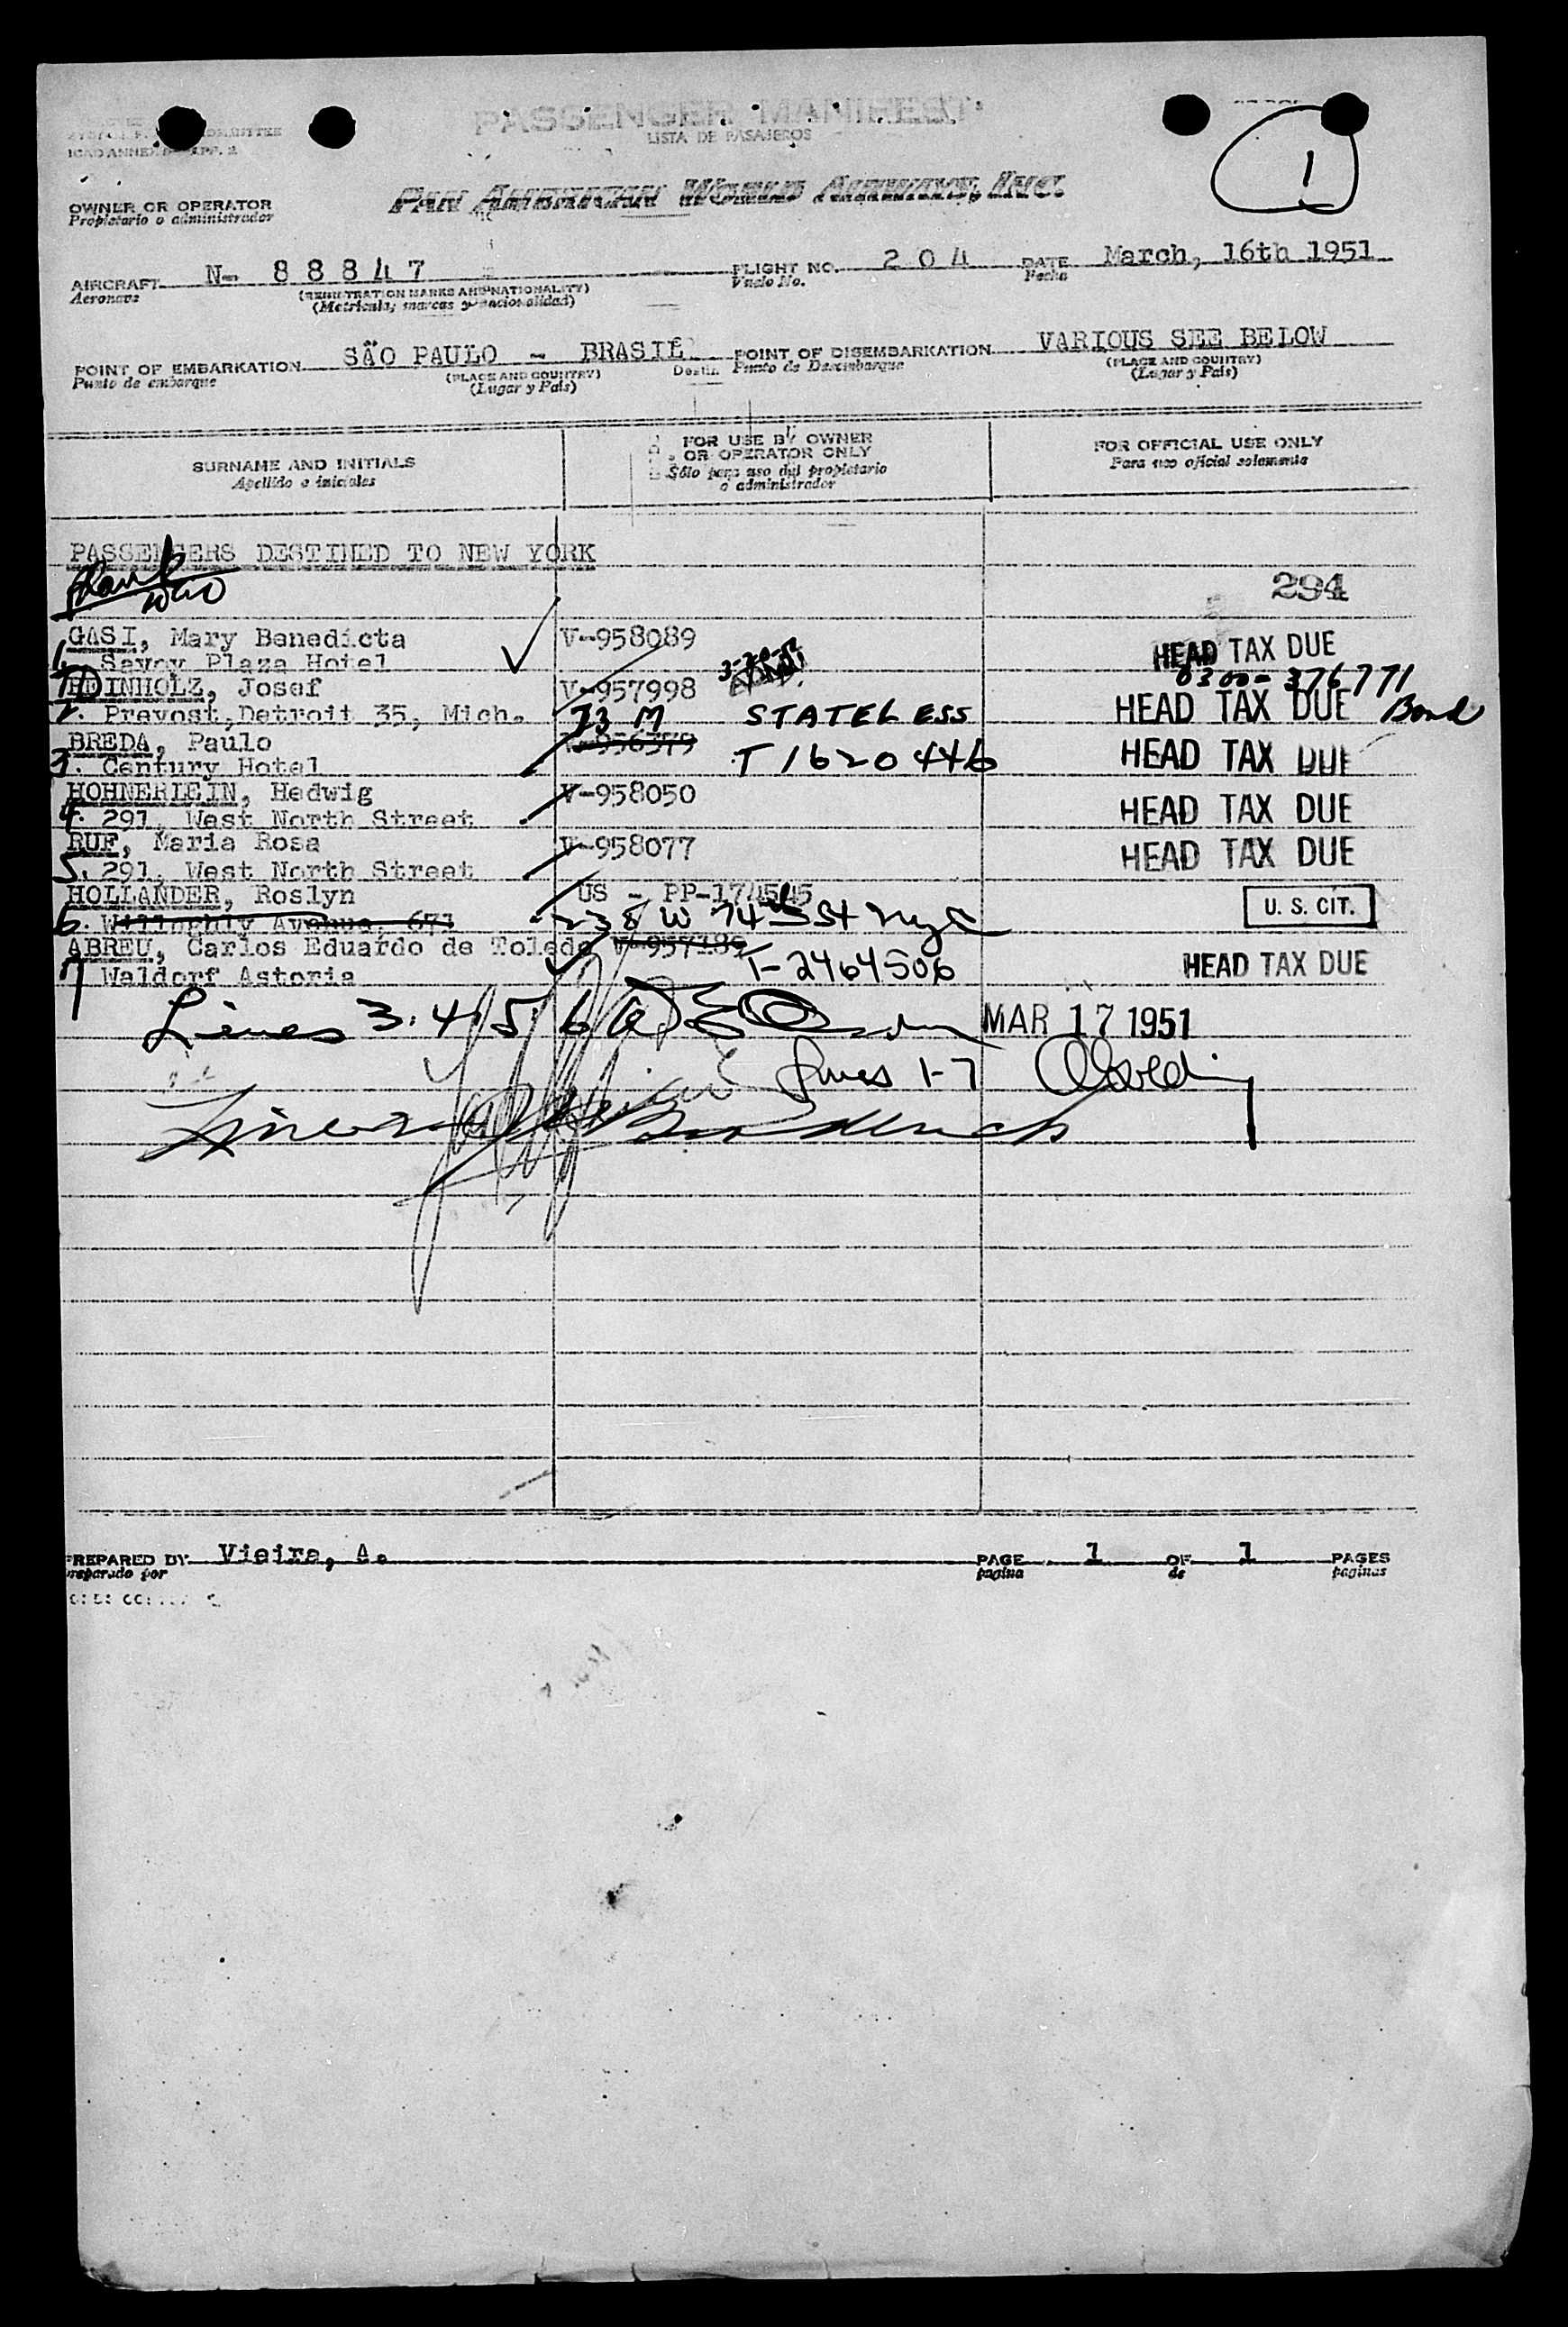 PASSENGER MANIFEST
LISTA DE PASAJEROS
ICAO ANNEX
1
OWNER OR OPERATOR
Propietario o administrador
PAN AMERICAN WORLD AIRWAYS, INC.
AIRCRAFT N- 88847 FLIGHT NO. 204 DATE March, 16th 1951
Aeronave (REGISTRATION MARKS AND NATIONALITY) Vuelo No. Fecha
(Metricula, marcas y nacionalidad)
POINT OF EMBARKATION SÃO PAULO - BRASIL POINT OF DISEMBARKATION VARIOUS SEE BELOW
Punto de embarque (PLACE AND COUNTRY) Destin. Punto de Desembarque (PLACE AND COUNTRY)
(Lugar y País) (Lugar y País)
SURNAME AND INITIALS FOR USE BY OWNER OR OPERATOR ONLY FOR OFFICIAL USE ONLY
Apellido e iniciales Sólo para uso del propietario o administrador Para uso oficial solamente
PASSENGERS DESTINED TO NEW YORK
294
GASI, Mary Benedicta V-958089 HEAD TAX DUE
1. Savoy Plaza Hotel 0300-376771
REINHOLZ, Josef V-957998 HEAD TAX DUE Bond
2. Prevost, Detroit 35, Mich. 73 M STATELESS
BREDA, Paulo V-956379 HEAD TAX DUE
3. Century Hotel T 1620446
HOHNERLEIN, Hedwig V-958050 HEAD TAX DUE
4. 291, West North Street
RUF, Maria Rosa V-958077 HEAD TAX DUE
5. 291, West North Street
HOLLANDER, Roslyn US - PP-174545 U. S. CIT.
6. Willoghly Avenue, 671 238 W 74th St NYC
ABREU, Carlos Eduardo de Toledo V-957189 HEAD TAX DUE
7 Waldorf Astoria T-2464506
Lines 3. 4. 5. 6 MAR 17 1951
Lines 1-7
PREPARED BY Vieira, A. PAGE 1 OF 1 PAGES
Preparado por pagina de paginas